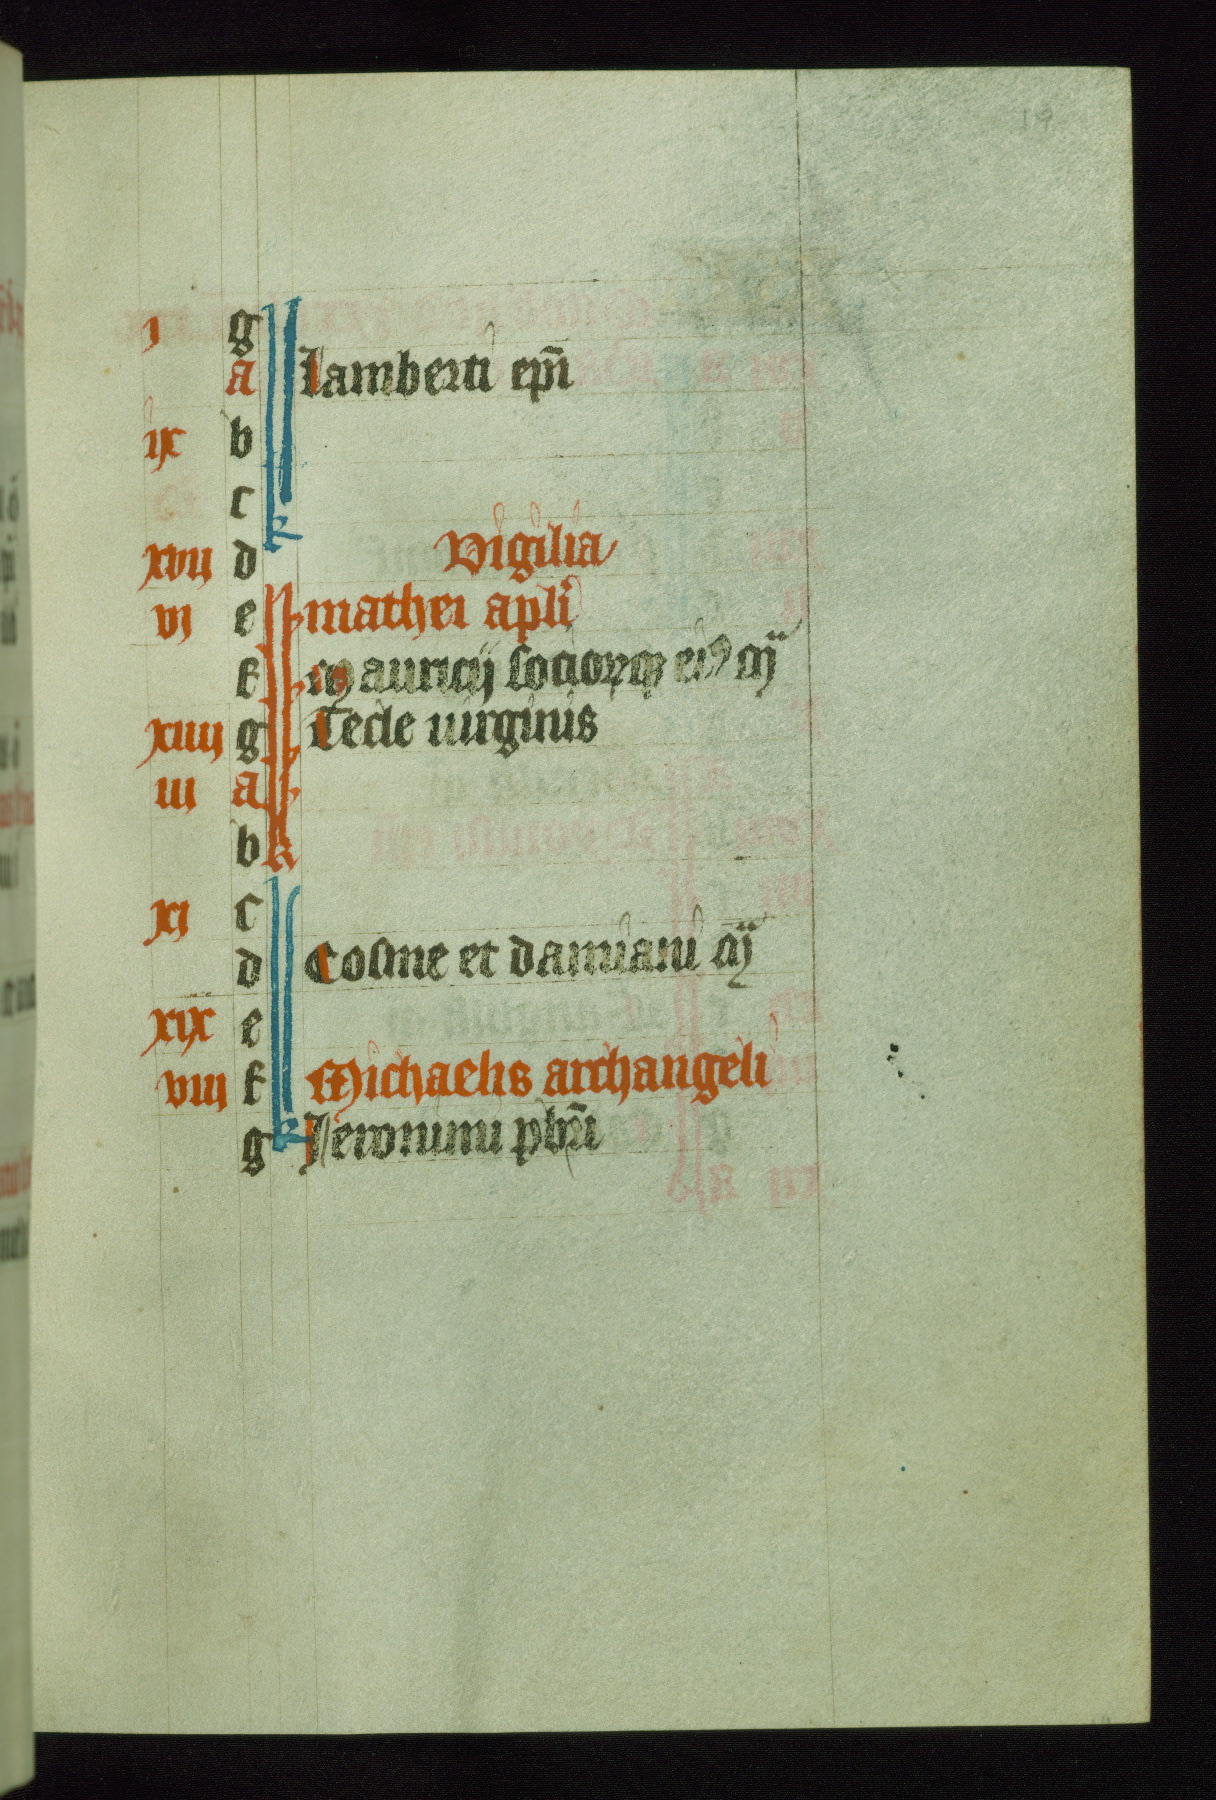 i g
A lamberti ep̄i
ix b
c
xvii d Vigilia
vi e mathei apl'i
f Mauricij socior̄ꝗ eiꝰ m̄
xiiij g Tecle uirginis
iii A
b k
xi c
d Cosme et damiani m̄
e xix
viii f Michaelis archangeli
g Jeronimi pb̄ri